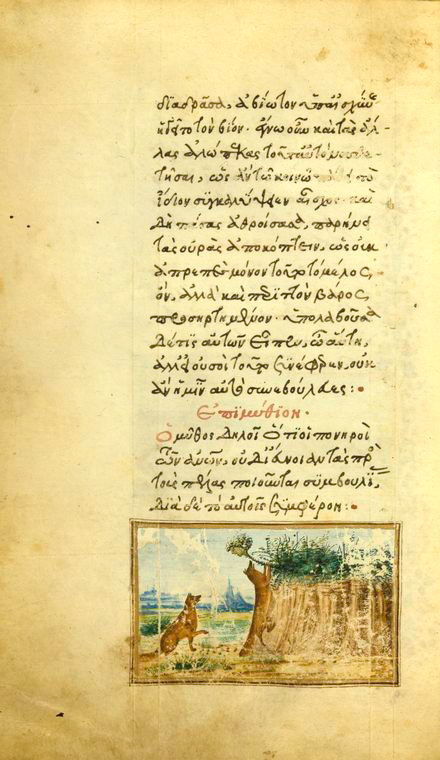 διαδρᾶσα, ἀβίωτον ὑπ' αἰσχύνης
ἡγεῖτο τὸν βίον. ἔγνω οὖν καὶ τὰς ἄλ-
λας ἀλώπεκας τοῦτ' αὐτὸ νουθε-
τῆσαι, ὡς ἂν τῷ κοινῷ πάθει τὸ
ἴδιον συγκαλύψειεν αἶσχος. καὶ
δὴ πάσας ἀθροίσασα, παρῄνει
τὰς οὐρὰς ἀποκόπτειν, ὡς οὐκ
ἀπρεπὲς μόνον τοῦτο τὸ μέλος
ὄν, ἀλλὰ καὶ περιττὸν βάρος
προσηρτημένον. ὑπολαβοῦσα
δέ τις αὐτῶν εἶπεν, ὦ αὕτη,
ἀλλ' εἰ οὐ σοὶ τοῦτο συνέφερεν, οὐκ
ἂν ἡμῖν αὐτὸ συνεβούλευες:
Ἐπιμύθιον.
Ὁ μῦθος δηλοῖ ὅτι οἱ πονηροὶ
τῶν ἀνθρώπων, οὐ δι' εὔνοιαν τὰς πρὸς
τοὺς πέλας ποιοῦνται συμβουλίας,
διὰ δὲ τὸ αὐτοῖς συμφέρον: